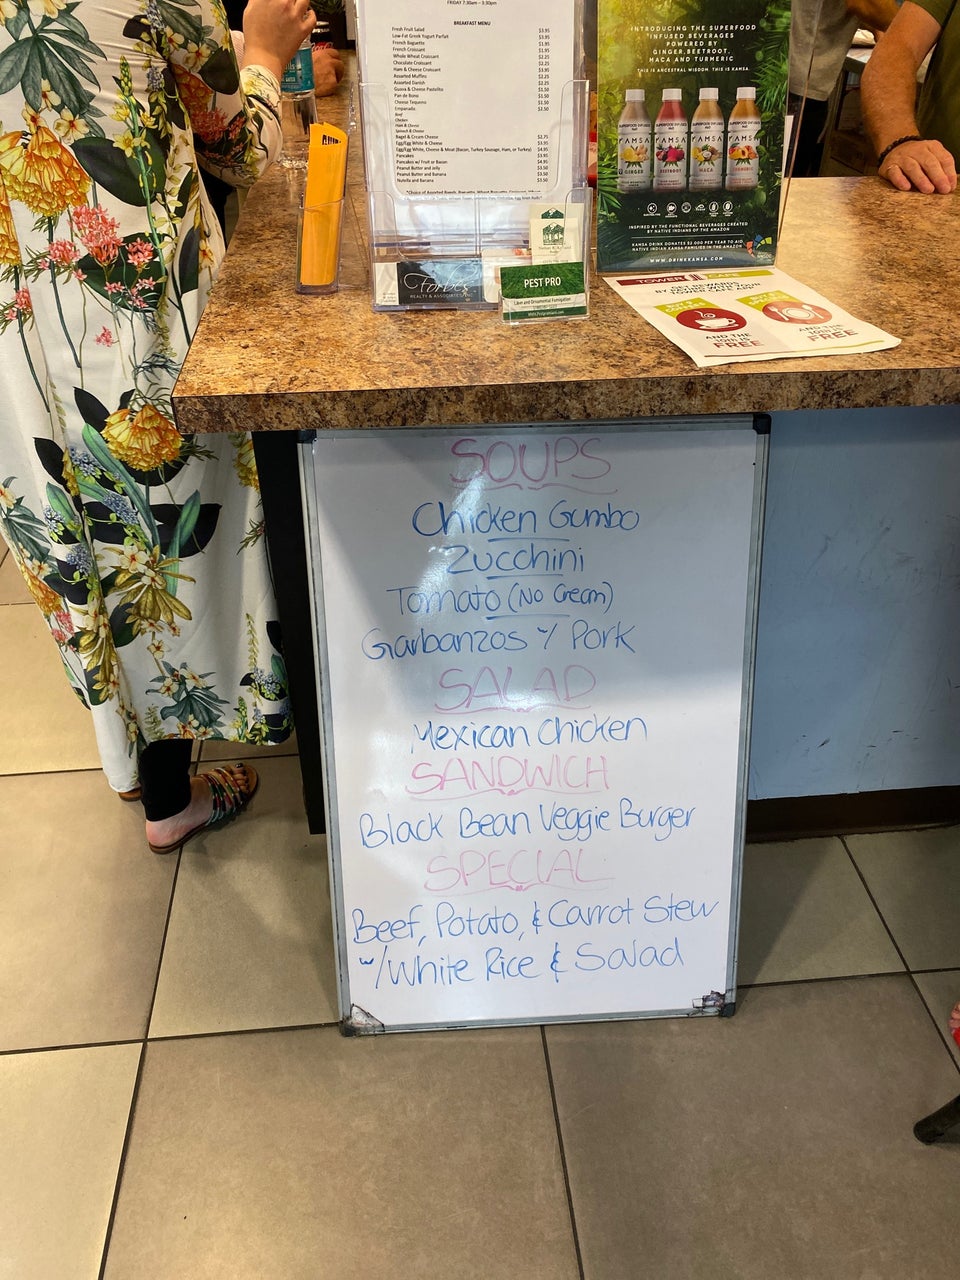 FRIDAY 7:30am – 3:30pm
BREAKFAST MENU
Fresh Fruit Salad $3.95
Low-Fat Greek Yogurt Parfait $3.95
French Baguette $1.95
French Croissant $1.95
Whole Wheat Croissant $2.25
Chocolate Croissant $2.25
Ham & Cheese Croissant $3.95
Assorted Muffins $2.25
Assorted Danish $2.25
Guava & Cheese Pastelito $1.50
Pan de Bono $2.50
Cheese Tequeno $1.50
Empanada. $2.50
Beef
Chicken
Ham & Cheese
Spinach & Cheese
Bagel & Cream Cheese $2.75
Egg/Egg White & Cheese $3.95
Egg/Egg White, Cheese & Meat (Bacon, Turkey Sausage, Ham, or Turkey) $4.95
Pancakes $3.95
Pancakes w/ Fruit or Bacon $4.95
Peanut Butter and Jelly $3.50
Peanut Butter and Banana $3.50
Nutella and Banana $3.50
INTRODUCING THE SUPERFOOD
INFUSED BEVERAGES
POWERED BY
GINGER, BEETROOT,
MACA AND TURMERIC
THIS IS ANCESTRAL WISDOM. THIS IS KAMSA.
GINGER
BEETROOT
MACA
INSPIRED BY THE FUNCTIONAL BEVERAGES CREATED
BY NATIVE INDIANS OF THE AMAZON
KAMSA DRINK DONATES $2 000 PER YEAR TO AID
NATIVE INDIAN KAMSA FAMILIES IN THE AMAZON.
WWW.DRINKKAMSA.COM
Forbes
REALTY & ASSOCIATES, INC.
PEST PRO
Lawn and Ornamental Fumigation
TOWER CAFE
GET REWARDS
AND THE
10th IS
FREE
AND THE
10th IS
FREE
SOUPS
Chicken Gumbo
Zucchini
Tomato (No Cream)
Garbanzos w/ Pork
SALAD
Mexican Chicken
SANDWICH
Black Bean Veggie Burger
SPECIAL
Beef, Potato, & Carrot Stew
w/ White Rice & Salad